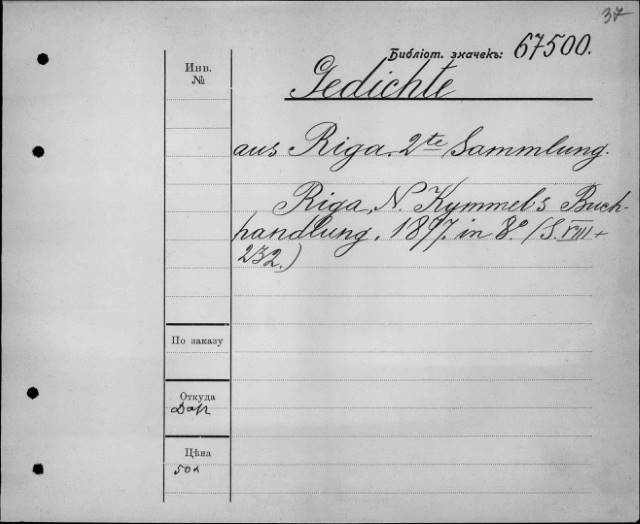 37
Библіот. значекъ: 67500.
Инв.
№
Gedichte
aus Riga. 2te Sammlung.
Riga, N. Kymmel's Buch-
handlung. 1897. in 8º. (S. VIII +
232.)
По заказу
Откуда
Дар
Цѣна
50к